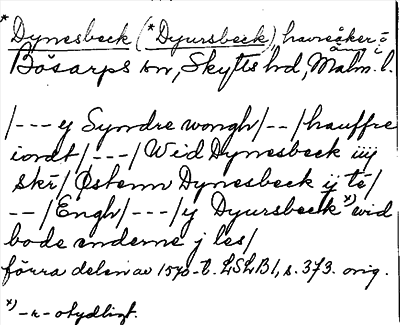 *Dynesbeck (*Dyursbeck), havreåker i
äng i
Bösarps sn, Skytts hd, Malm. l.
/---y Syndre wongh/--/hauffre
iordt/---/Wid Dynesbeck iiij
skr/ Østenn Dynesbeck ij té/
--/Engh/---/y Dyursbeck x) wid
bode enderne j les/
förra delen av 1570-t. LSLB1, s. 373. orig.
x) -r- otydligt.